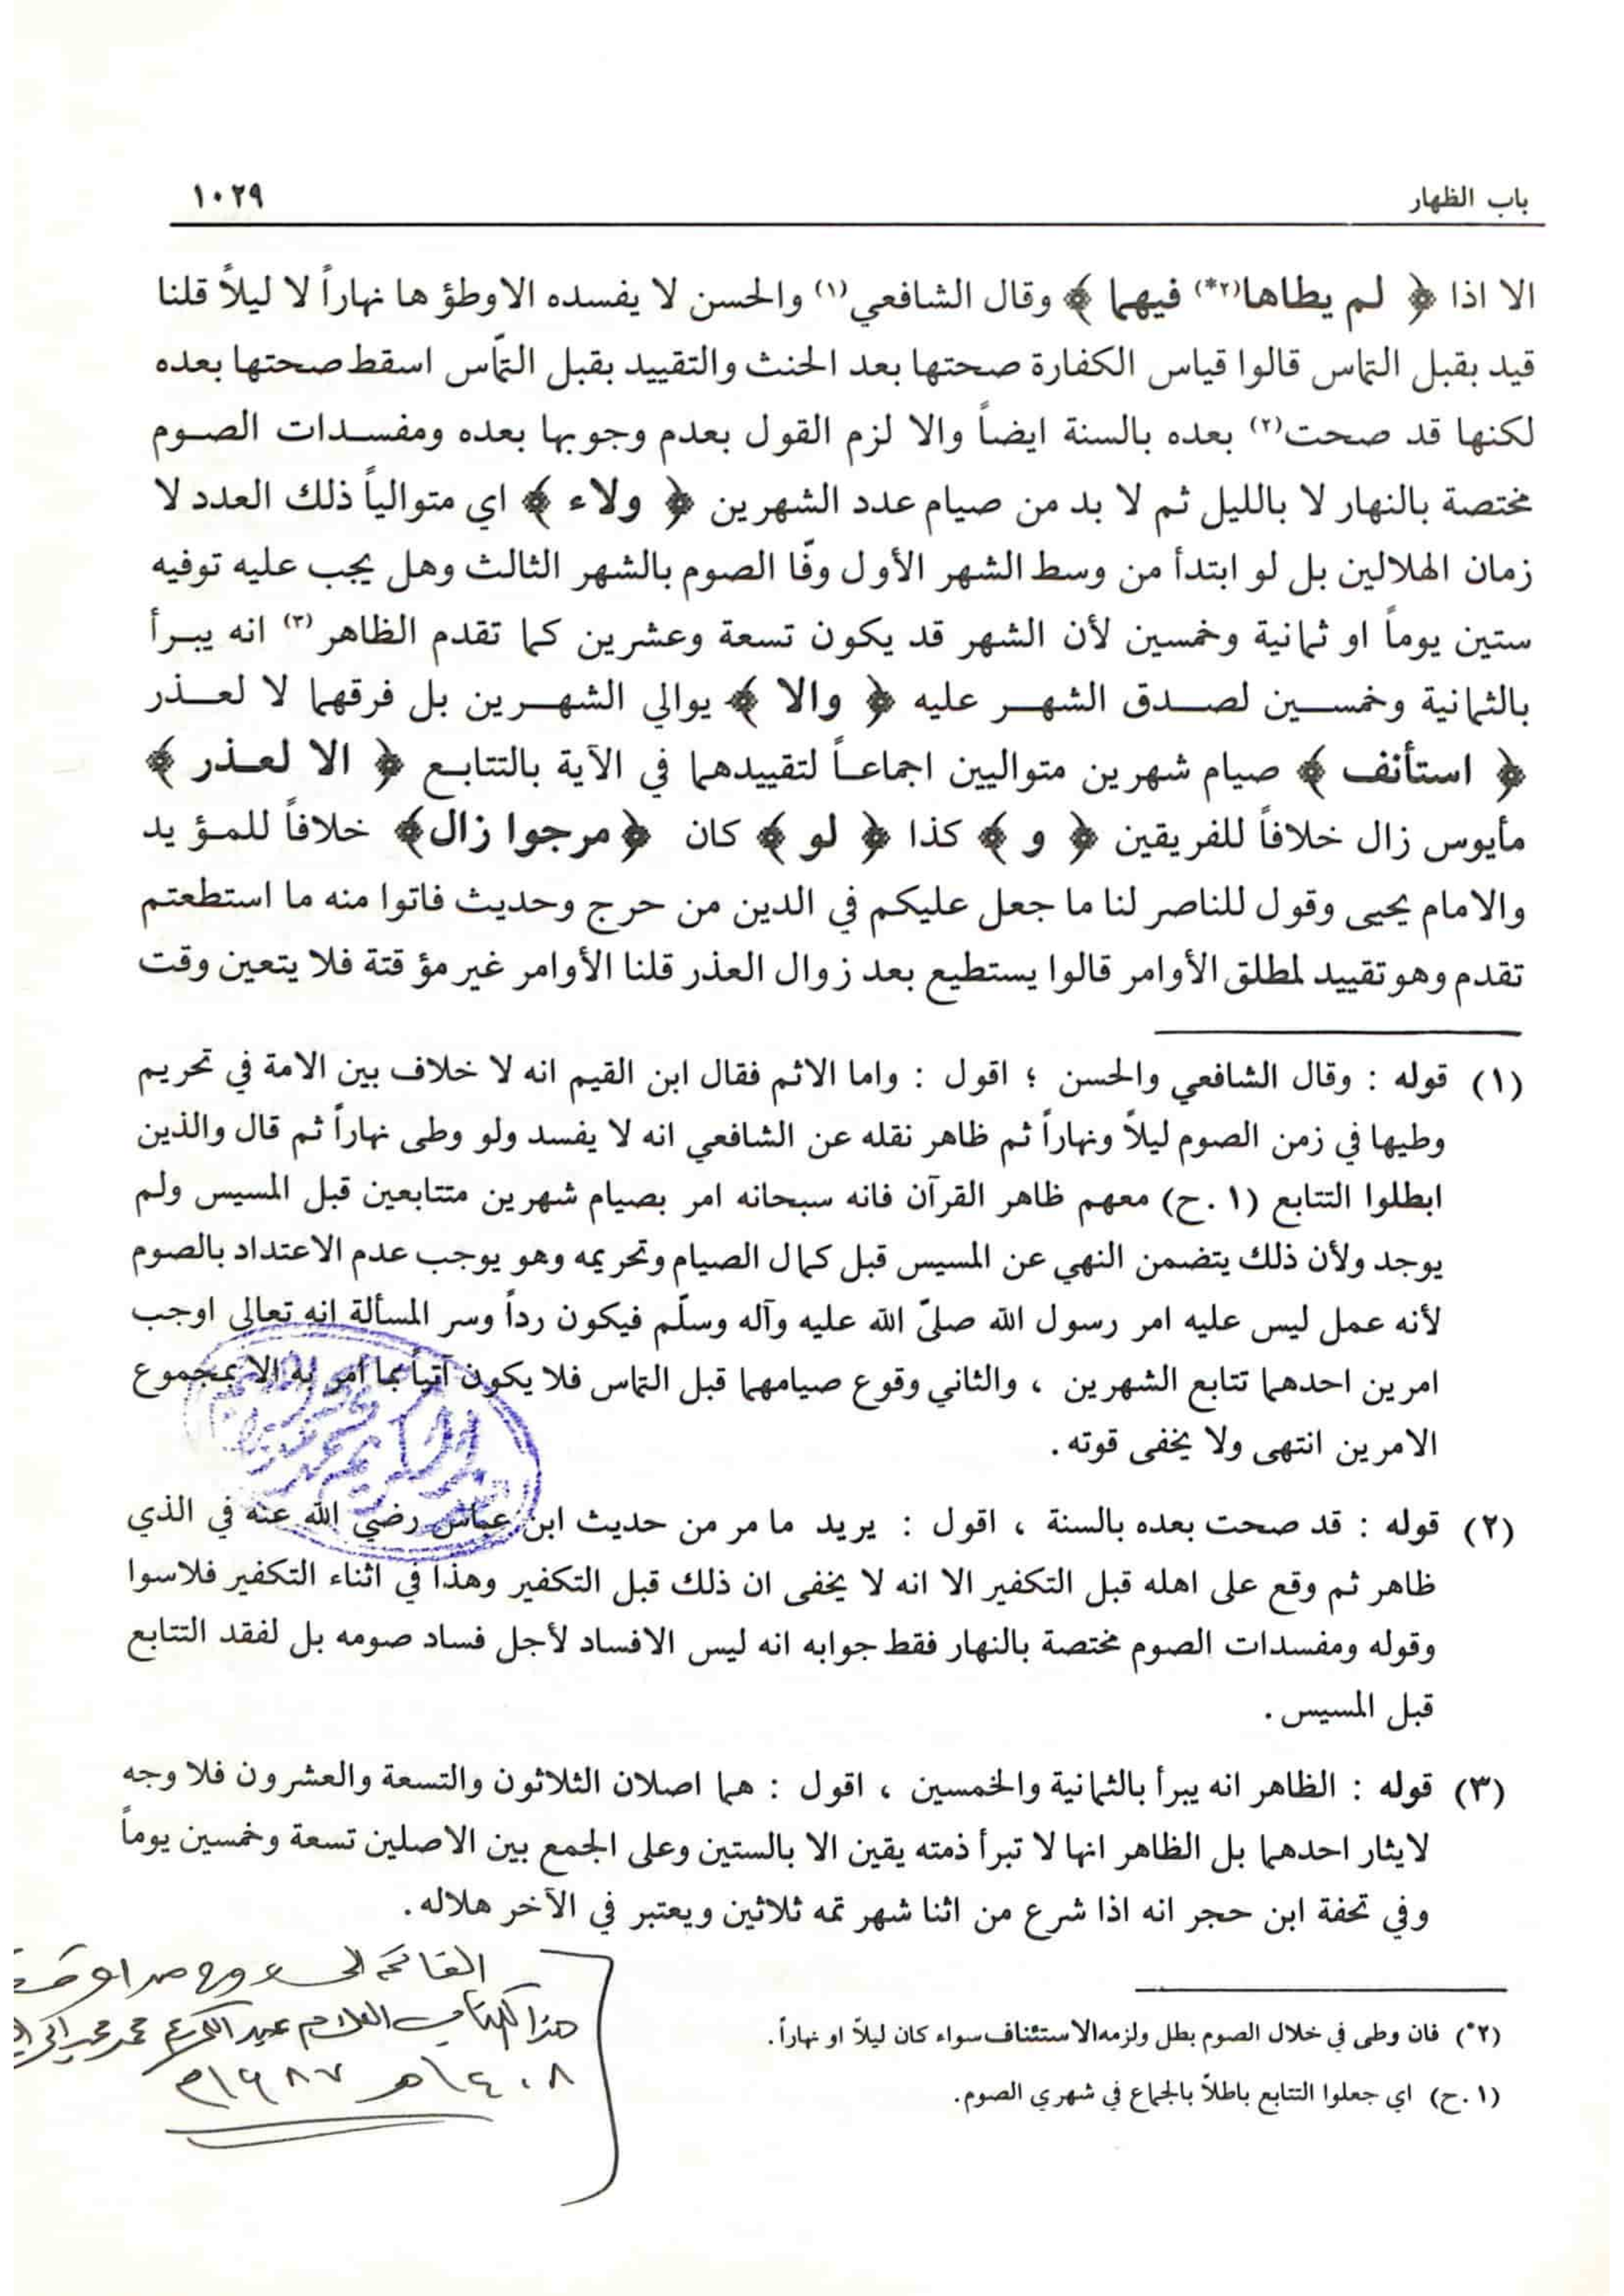 باب الظهار ١٠٢٩
الا اذا ﴿ لم يطاها(٢*) فيهما ﴾ وقال الشافعي(١) والحسن لا يفسده الاوطؤ ها نهاراً لا ليلاً قلنا
قيد بقبل التماس قالوا قياس الكفارة صحتها بعد الحنث والتقييد بقبل التمّاس اسقط صحتها بعده
لكنها قد صحت(٢) بعده بالسنة ايضاً والا لزم القول بعدم وجوبها بعده ومفسدات الصوم
مختصة بالنهار لا بالليل ثم لا بد من صيام عدد الشهرين ﴿ ولاء ﴾ اي متوالياً ذلك العدد لا
زمان الهلالين بل لو ابتدأ من وسط الشهر الأول وفّا الصوم بالشهر الثالث وهل يجب عليه توفيه
ستين يوماً او ثمانية وخمسين لأن الشهر قد يكون تسعة وعشرين كما تقدم الظاهر(٣) انه يبرأ
بالثمانية وخمسين لصدق الشهر عليه ﴿ والا ﴾ يوالي الشهرين بل فرقهما لا لعذر
﴿ استأنف ﴾ صيام شهرين متواليين اجماعاً لتقييدهما في الآية بالتتابع ﴿ الا لعذر ﴾
مأيوس زال خلافاً للفريقين ﴿ و ﴾ كذا ﴿ لو ﴾ كان ﴿مرجوا زال﴾ خلافاً للمؤ يد
والامام يحيى وقول للناصر لنا ما جعل عليكم في الدين من حرج وحديث فاتوا منه ما استطعتم
تقدم وهو تقييد لمطلق الأوامر قالوا يستطيع بعد زوال العذر قلنا الأوامر غير مؤ قتة فلا يتعين وقت
(١) قوله : وقال الشافعي والحسن ؛ اقول : واما الاثم فقال ابن القيم انه لا خلاف بين الامة في تحريم
وطيها في زمن الصوم ليلاً ونهاراً ثم ظاهر نقله عن الشافعي انه لا يفسد ولو وطى نهاراً ثم قال والذين
ابطلوا التتابع (١ .ح) معهم ظاهر القرآن فانه سبحانه امر بصيام شهرين متتابعين قبل المسيس ولم
يوجد ولأن ذلك يتضمن النهي عن المسيس قبل كمال الصيام وتحريمه وهو يوجب عدم الاعتداد بالصوم
لأنه عمل ليس عليه امر رسول الله صلىّ الله عليه وآله وسلّم فيكون رداً وسر المسألة انه تعالى اوجب
امرين احدهما تتابع الشهرين ، والثاني وقوع صيامهما قبل التماس فلا يكون آتياً بما أمر به الا بمجموع
الامرين انتهى ولا يخفى قوته .
(٢) قوله : قد صحت بعده بالسنة ، اقول : يريد ما مر من حديث ابن عباس رضي الله عنه في الذي
ظاهر ثم وقع على اهله قبل التكفير الا انه لا يخفى ان ذلك قبل التكفير وهذا في اثناء التكفير فلاسوا
وقوله ومفسدات الصوم مختصة بالنهار فقط جوابه انه ليس الافساد لأجل فساد صومه بل لفقد التتابع
قبل المسيس .
(٣) قوله : الظاهر انه يبرأ بالثمانية والخمسين ، اقول : هما اصلان الثلاثون والتسعة والعشرون فلا وجه
لايثار احدهما بل الظاهر انها لا تبرأ ذمته يقين الا بالستين وعلى الجمع بين الاصلين تسعة وخمسين يوماً
وفي تحفة ابن حجر انه اذا شرع من اثنا شهر تمه ثلاثين ويعتبر في الآخر هلاله .
(٢*) فان وطى في خلال الصوم بطل ولزمه الاستئناف سواء كان ليلاً او نهاراً .
(١ .ح) اي جعلوا التتابع باطلاً بالجماع في شهري الصوم .
الفاتحة الى
هذا الكتاب عبد الكريم محمد
١٤٠٨هـ ١٩٨٧م